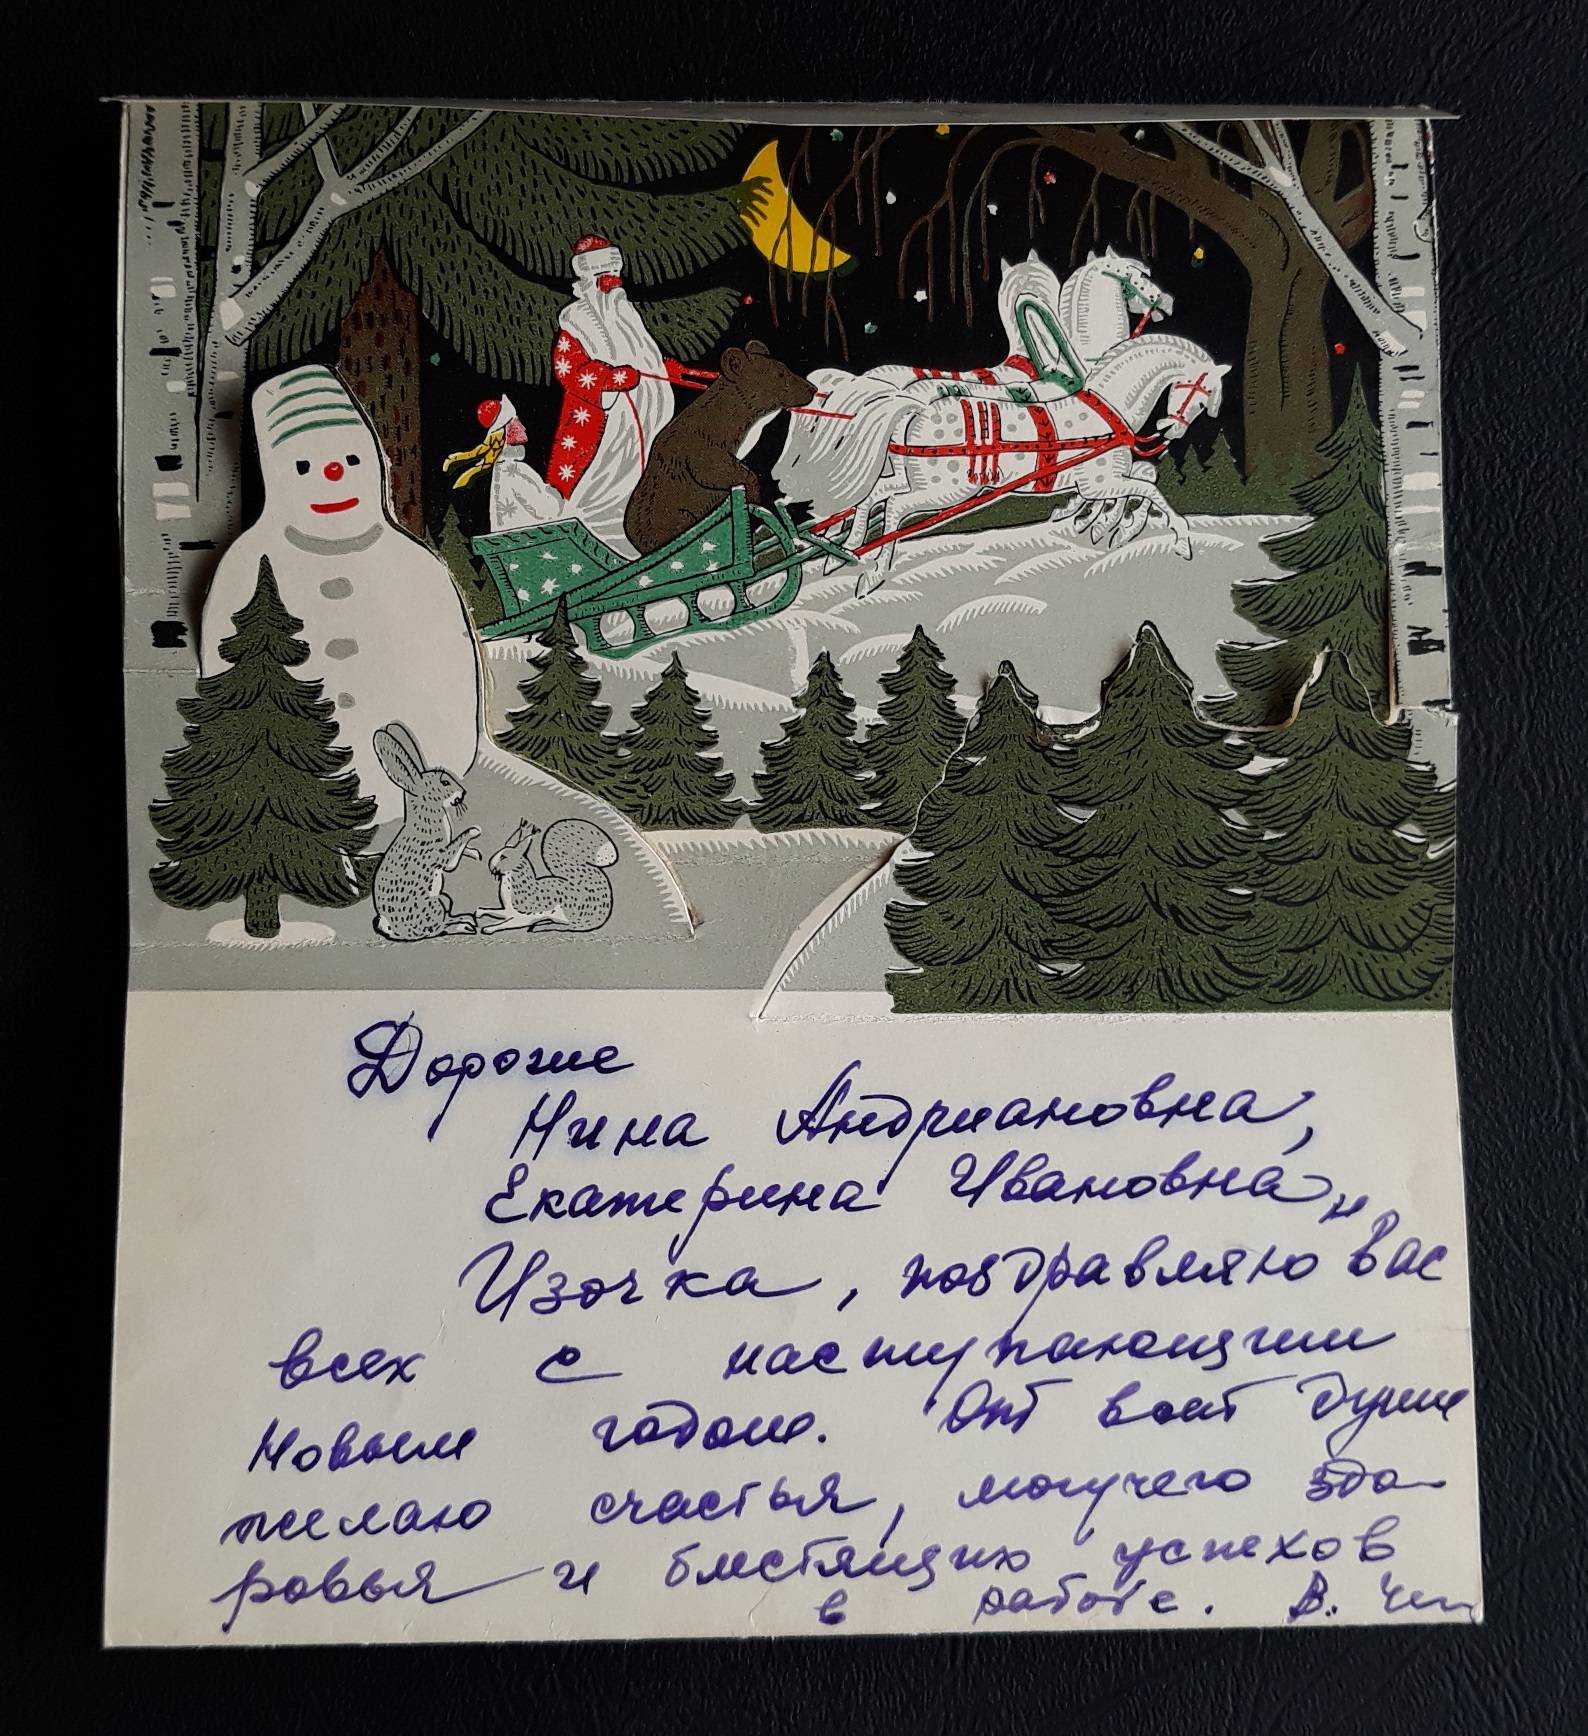 Дорогие
Нина Андриановна,
Екатерина Ивановна и
Изочка, поздравляю Вас
всех с наступающим
Новым годом. От всей души
желаю счастья, могучего здо-
ровья и блестящих успехов
в работе. В.